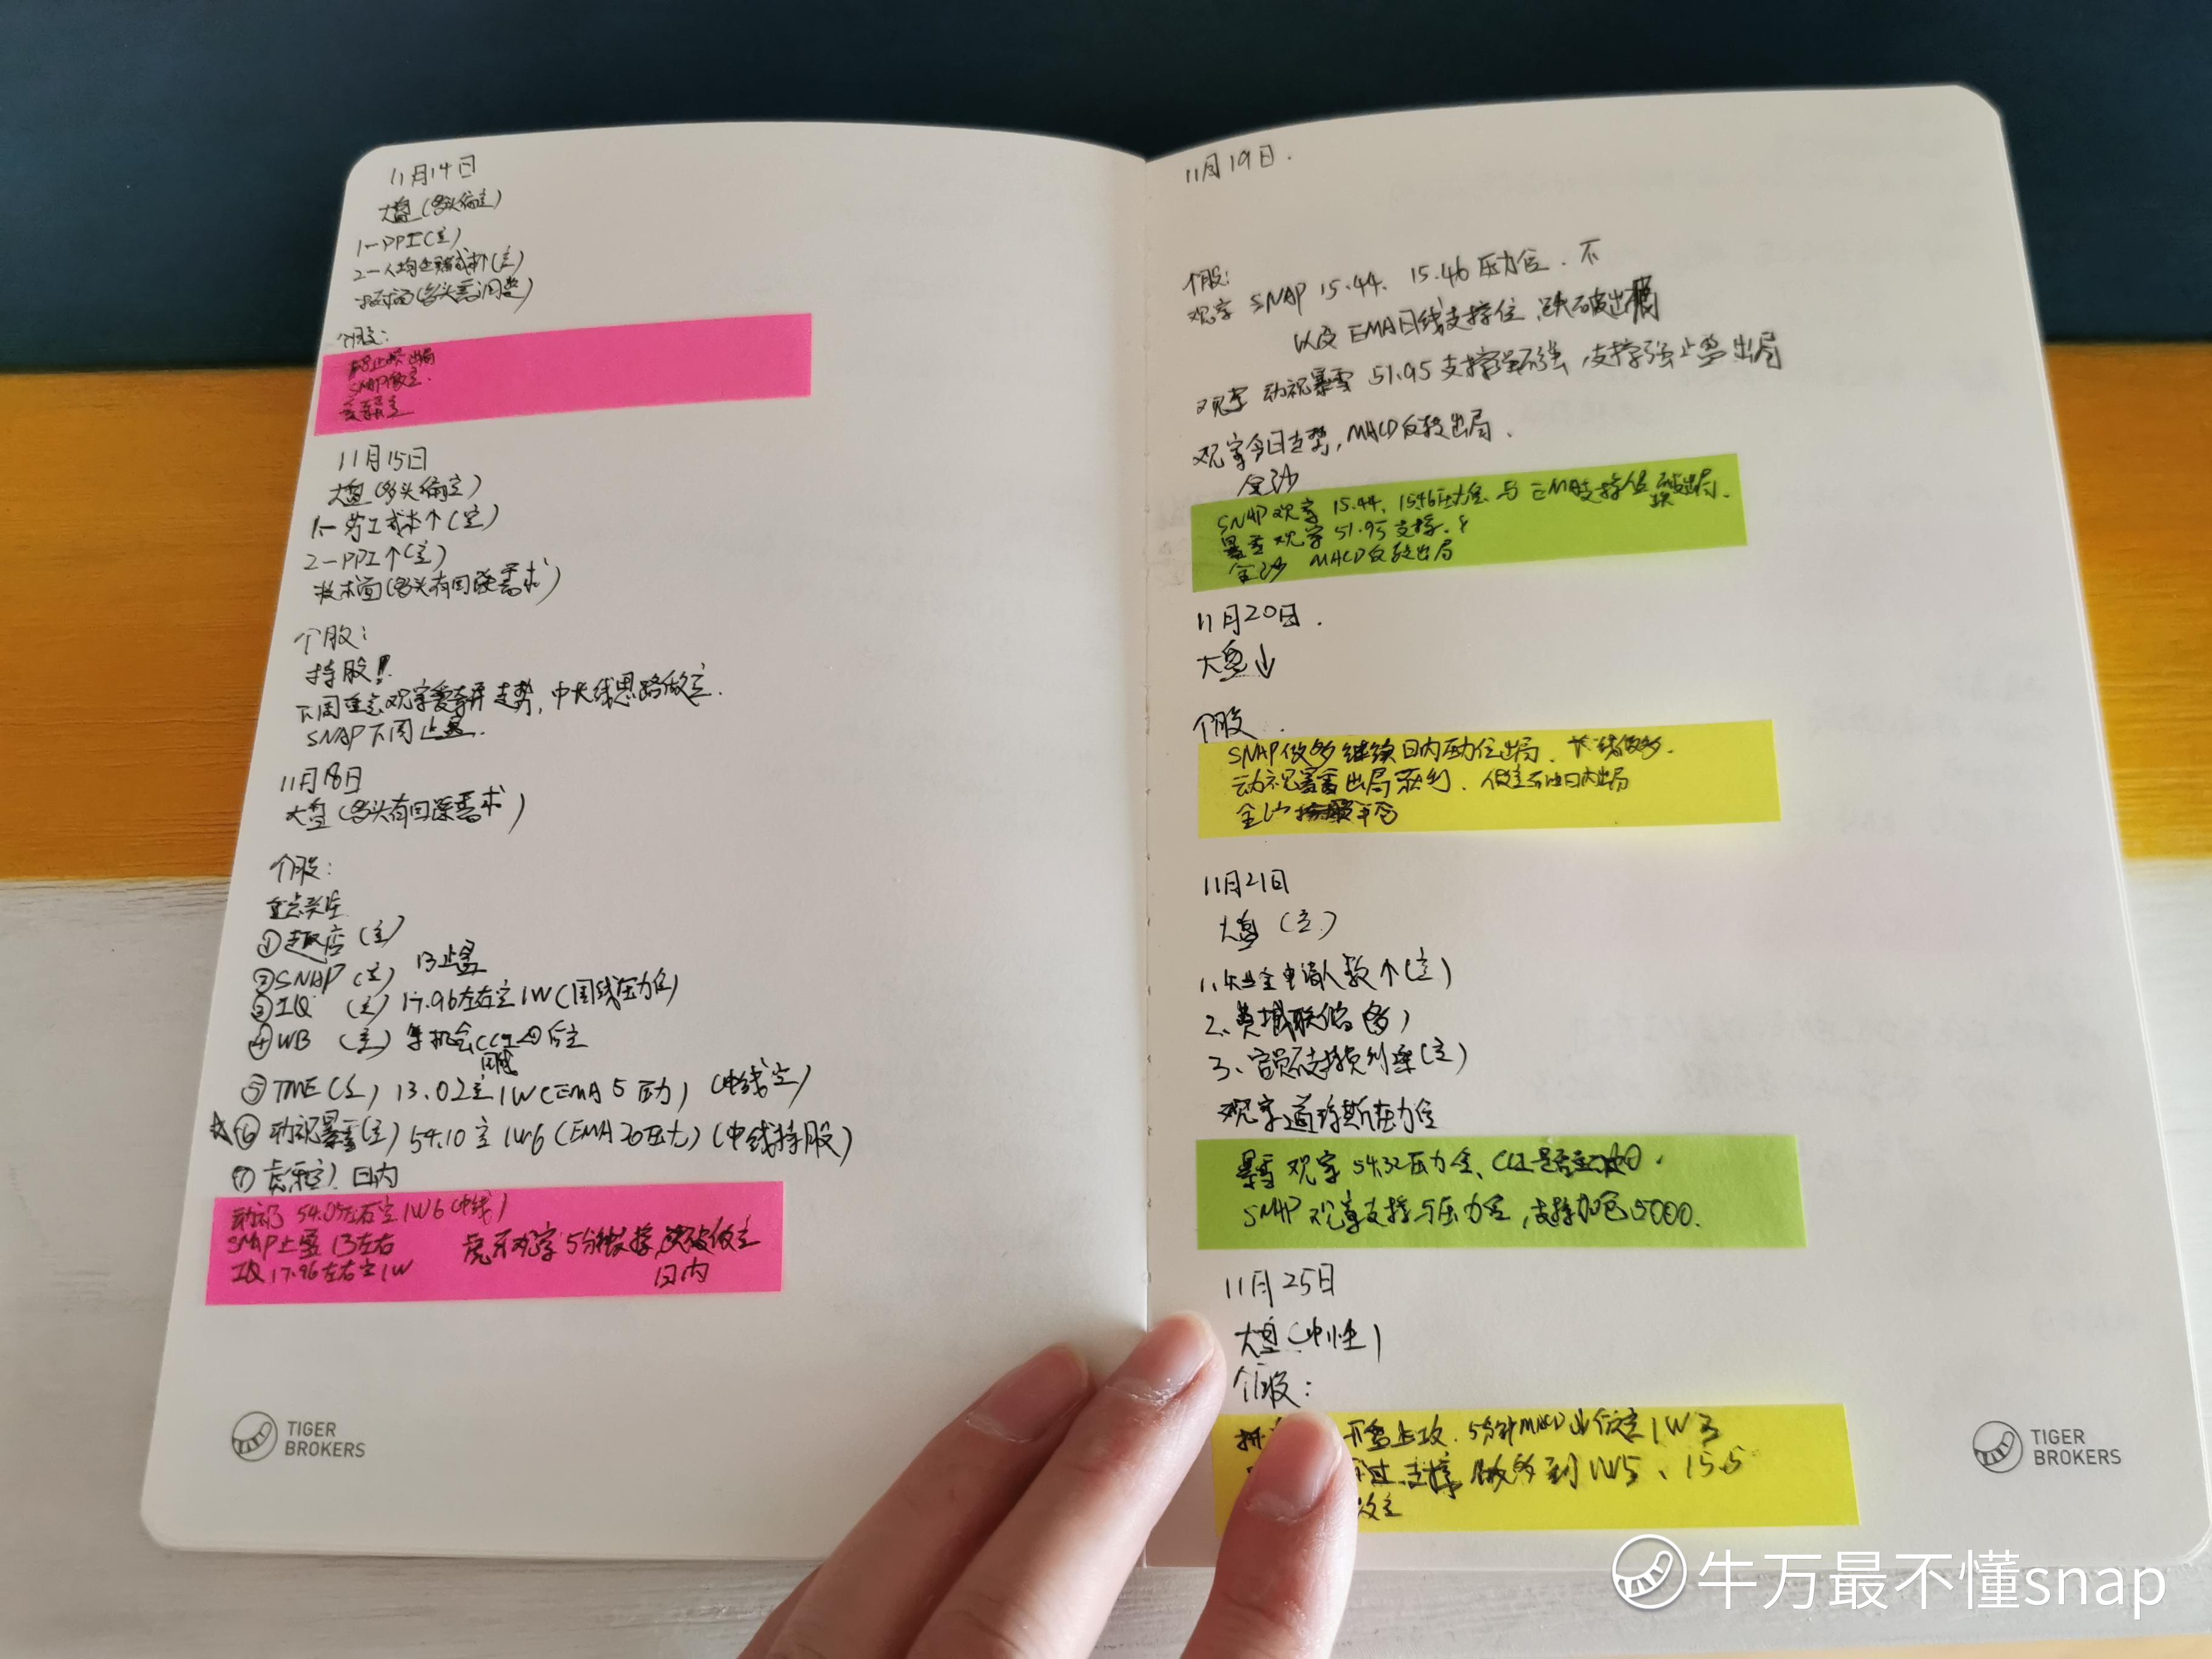 11月14日
大盘(多头偏空)
1-PPI(空)
2-人均
技术面(多头需调整)
个股:
止盈出局
SNAP做空.
11月15日
大盘(多头偏空)
1-劳工成本个(空)
2-PPI个(空)
技术面(多头有回踩需求)
个股:
持股!
下周重点观察爱奇艺走势,中长线思路做空.
SNAP下周止盈.
11月18日
大盘(多头有回踩需求)
个股:
重点关注
①趣店(空)
②SNAP(空) 13止盈
③IQ (空) 17.96左右空1W(周线压力位)
④WB (空) 等机会CCI 后空
⑤TME(空) 13.02空1W(EMA5压力)(中线空)
☆⑥动视暴雪(空)54.10空1W6(EMA20压力)(中线持股)
⑦虎牙(空).日内
动视 54.05左右空1W6(中线)
SNAP止盈13左右
IQ 17.96左右空1W
虎牙观察5分钟支撑,突破做空
日内
TIGER
BROKERS
11月19日.
个股:
观察 SNAP 15.44、15.46压力位.不
以及EMA日线支撑位,跌破出局
观察 动视暴雪 51.95支撑强不强,支撑强止盈出局
观察今日走势,MACD反转出局.
金沙
SNAP观察 15.44、15.46压力位 与EMA支撑位 跌破出局.
暴雪观察51.95支撑.
金沙 MACD反转出局
11月20日.
大盘↓
个股.
SNAP做多继续日内压力位出局.长线做多.
动视暴雪出局获利.做空不过日内出局
金沙 平仓
11月21日
大盘(空)
1、失业金申请人数个(空)
2、费城联储(多)
3、官员不支持负利率(空)
观察道琼斯压力位
暴雪观察54.32压力位、CCI是否
SNAP观察支撑与压力位,支撑加仓5000.
11月25日
大盘(中性)
个股:
开盘上攻.5分钟MACD 做空1W3
支撑 做多到1W5、15.5
做空
TIGER
BROKERS
牛万最不懂snap